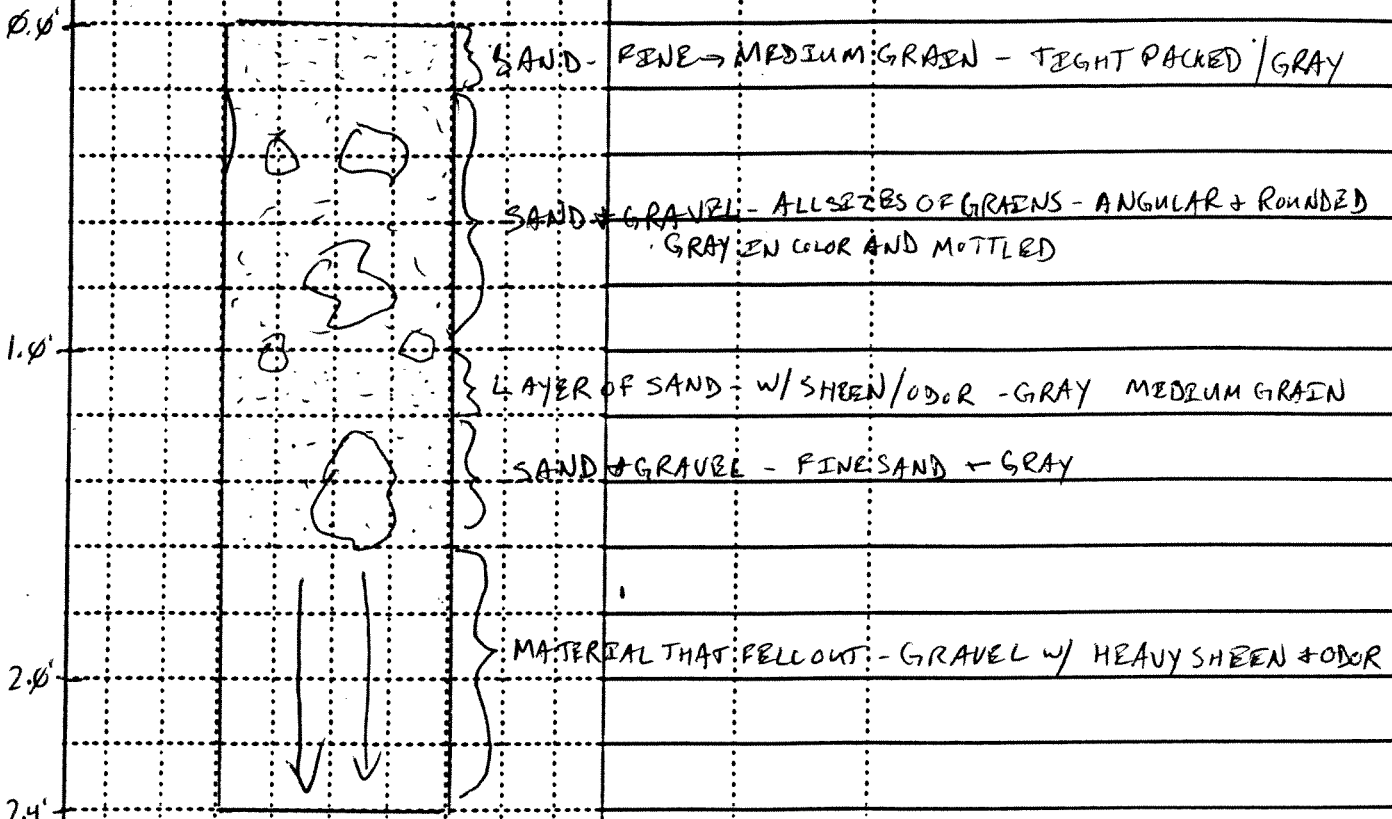 0.0'
SAND - FINE → MEDIUM GRAIN - TIGHT PACKED / GRAY
SAND & GRAVEL - ALL SIZES OF GRAINS - ANGULAR & ROUNDED
GRAY IN COLOR AND MOTTLED
1.0'
LAYER OF SAND - W/ SHEEN/ODOR - GRAY MEDIUM GRAIN
SAND & GRAVEL - FINE SAND - GRAY
MATERIAL THAT FELL OUT - GRAVEL W/ HEAVY SHEEN & ODOR
2.0'
2.4'